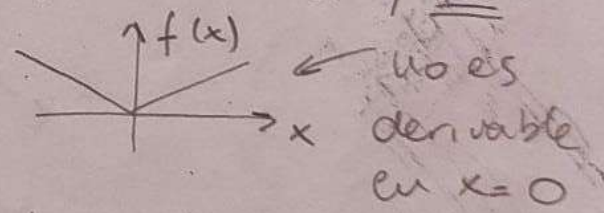 f(x)
x
no es
derivable
en x=0